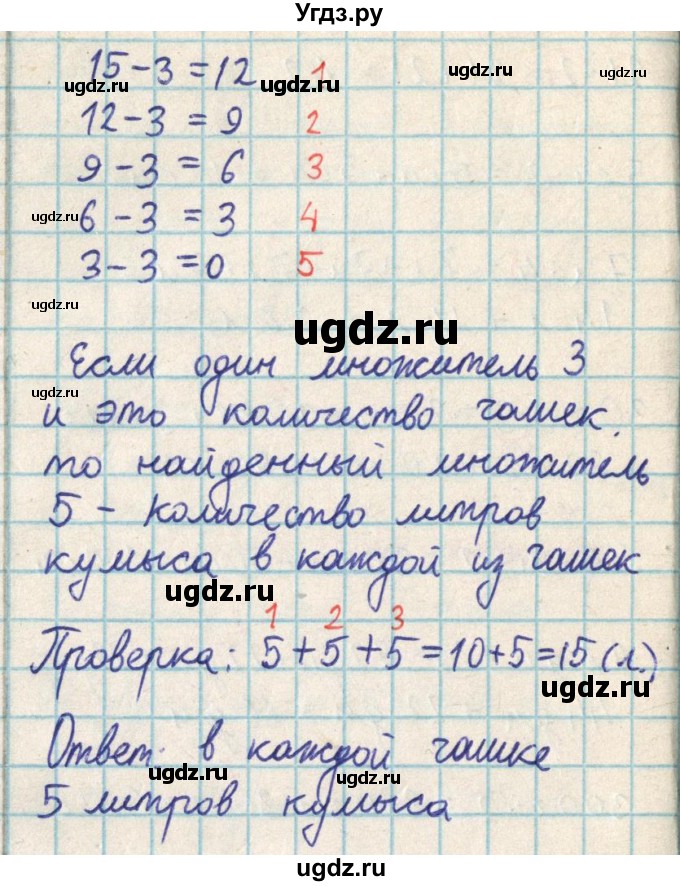 Угдз.ру
15-3=12 1
12-3=9 2
9-3=6 3
6-3=3 4
3-3=0 5
Если один множитель 3
и это количество чашек,
то найденный множитель
5 - количество литров
кумыса в каждой из чашек
1 2 3
Проверка: 5+5+5=10+5=15 (л.)
Ответ: в каждой чашке
5 литров кумыса
ugdz.ru
ugdz.ru
ugdz.ru
ugdz.ru
ugdz.ru
ugdz.ru
ugdz.ru
ugdz.ru
ugdz.ru
ugdz.ru
ugdz.ru
ugdz.ru
ugdz.ru